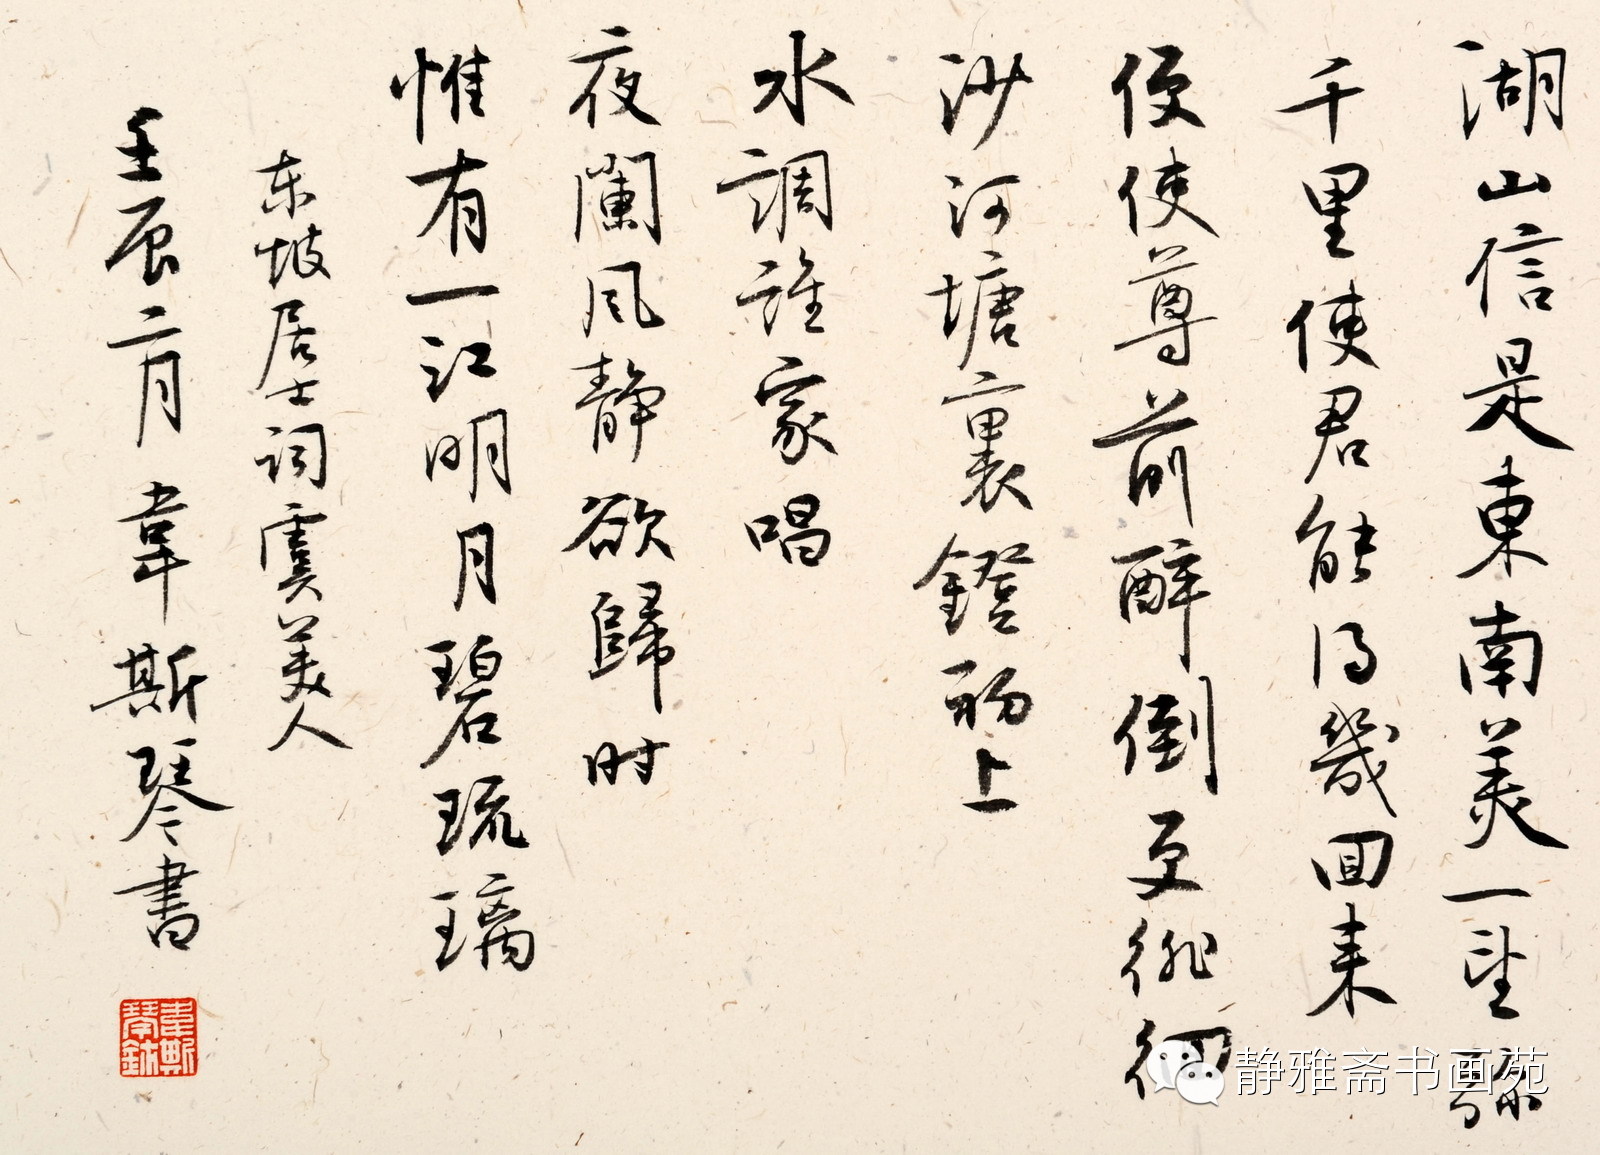 湖山信是東南美一望弥
千里使君能得幾回来
便使尊前醉倒更徘徊
沙河塘裏鐙初上
水調誰家唱
夜闌风静欲歸时
惟有一江明月碧琉璃
东坡居士词虞美人
壬辰二月韋斯琴書
韋斯琴鉥
静雅斋书画苑